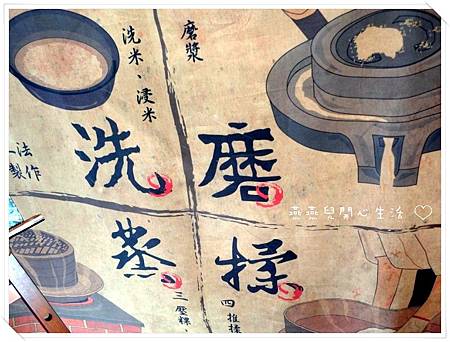 洗米、浸米
洗
磨漿
磨
法
製作
蒸
三 壓粿、
揉
四 推揉
燕燕兒開心生活 ♡